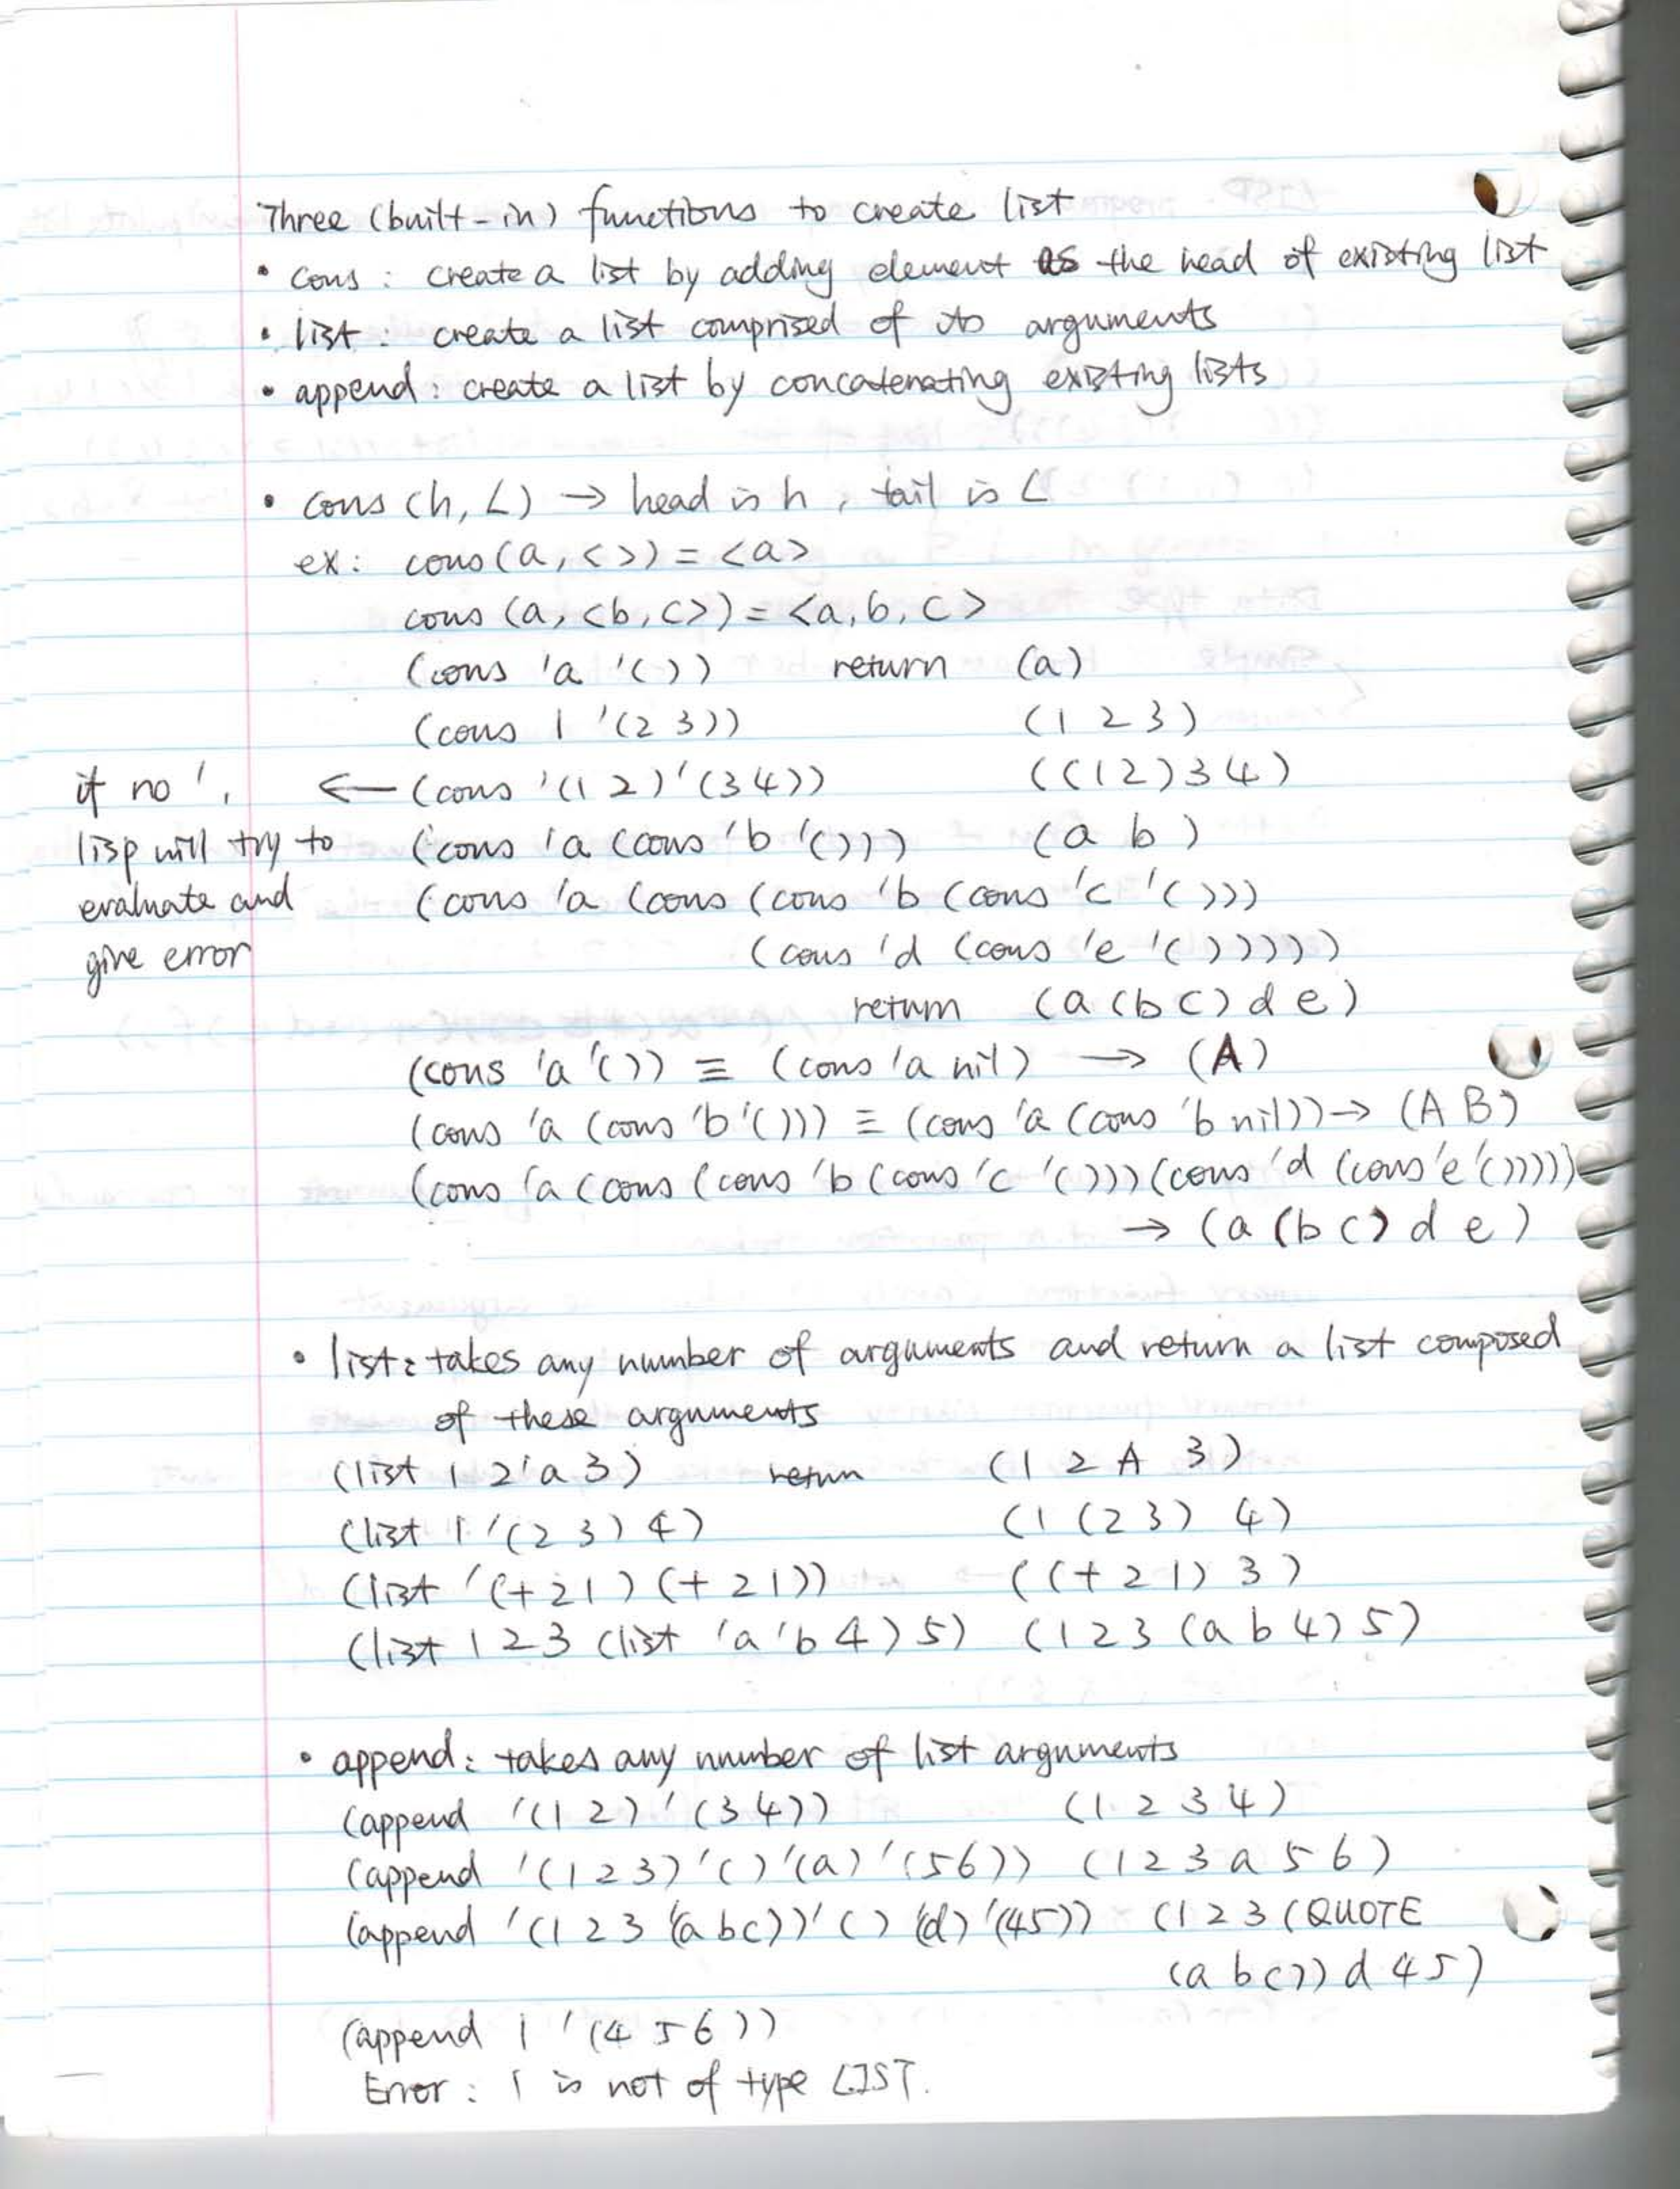 Three (built-in) functions to create list
• cons : create a list by adding element as the head of existing list
• list : create a list comprised of its arguments
• append : create a list by concatenating existing lists
• cons (h, L) → head is h , tail is L
ex : cons (a, < >) = <a>
cons (a, <b, c>) = <a, b, c>
(cons 'a '( )) return (a)
(cons 1 '(2 3)) (1 2 3)
if no ' , ← (cons '(1 2) '(3 4)) ((1 2) 3 4)
lisp will try to (cons 'a (cons 'b '())) (a b)
evaluate and (cons 'a (cons (cons 'b (cons 'c '( )))
give error (cons 'd (cons 'e '( )))))
return (a (b c) d e)
(cons 'a '()) ≡ (cons 'a nil) → (A)
(cons 'a (cons 'b '())) ≡ (cons 'a (cons 'b nil)) → (A B)
(cons 'a (cons (cons 'b (cons 'c '( ))) (cons 'd (cons 'e '()))))
→ (a (b c) d e)
• list : takes any number of arguments and return a list composed
of these arguments
(list 1 2 'a 3) retun (1 2 A 3)
(list 1 '(2 3) 4) (1 (2 3) 4)
(list '(+ 2 1) (+ 2 1)) ((+ 2 1) 3)
(list 1 2 3 (list 'a 'b 4) 5) (1 2 3 (a b 4) 5)
• append : takes any number of list arguments
(append '(1 2) '(3 4)) (1 2 3 4)
(append '(1 2 3) '( ) '(a) '(5 6)) (1 2 3 a 5 6)
(append '(1 2 3 '(a b c)) '( ) '(d) '(4 5)) (1 2 3 (QUOTE
(a b c)) d 4 5)
(append 1 '(4 5 6))
Error : 1 is not of type LIST.